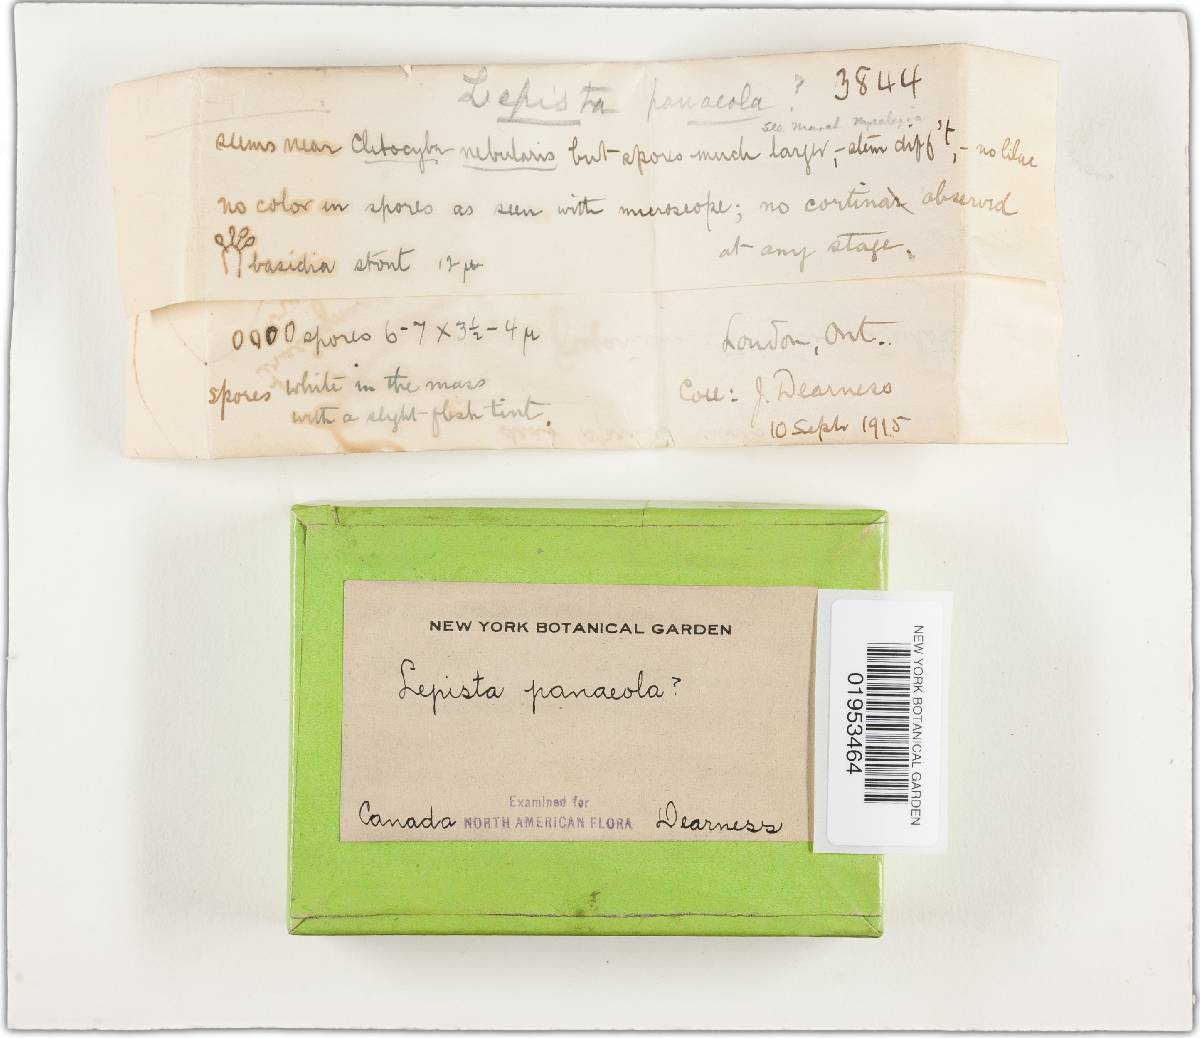 Lepista panaeola? 3844
See March Mycologia
seems near Clitocybe nebularis but spores much larger, - stem diff't, - no lilac
no color in spores as seen with microscope; no cortina observed
at any stage.
basidia stout 12 µ
spores 6-7 x 3½-4 µ
London, Ont.
spores white in the mass
with a slight flesh tint.
Coll: J. Dearness
10 Sept 1915
NEW YORK BOTANICAL GARDEN
Lepista panaeola?
Examined for
Canada NORTH AMERICAN FLORA Dearness
NEW YORK BOTANICAL GARDEN
01953464